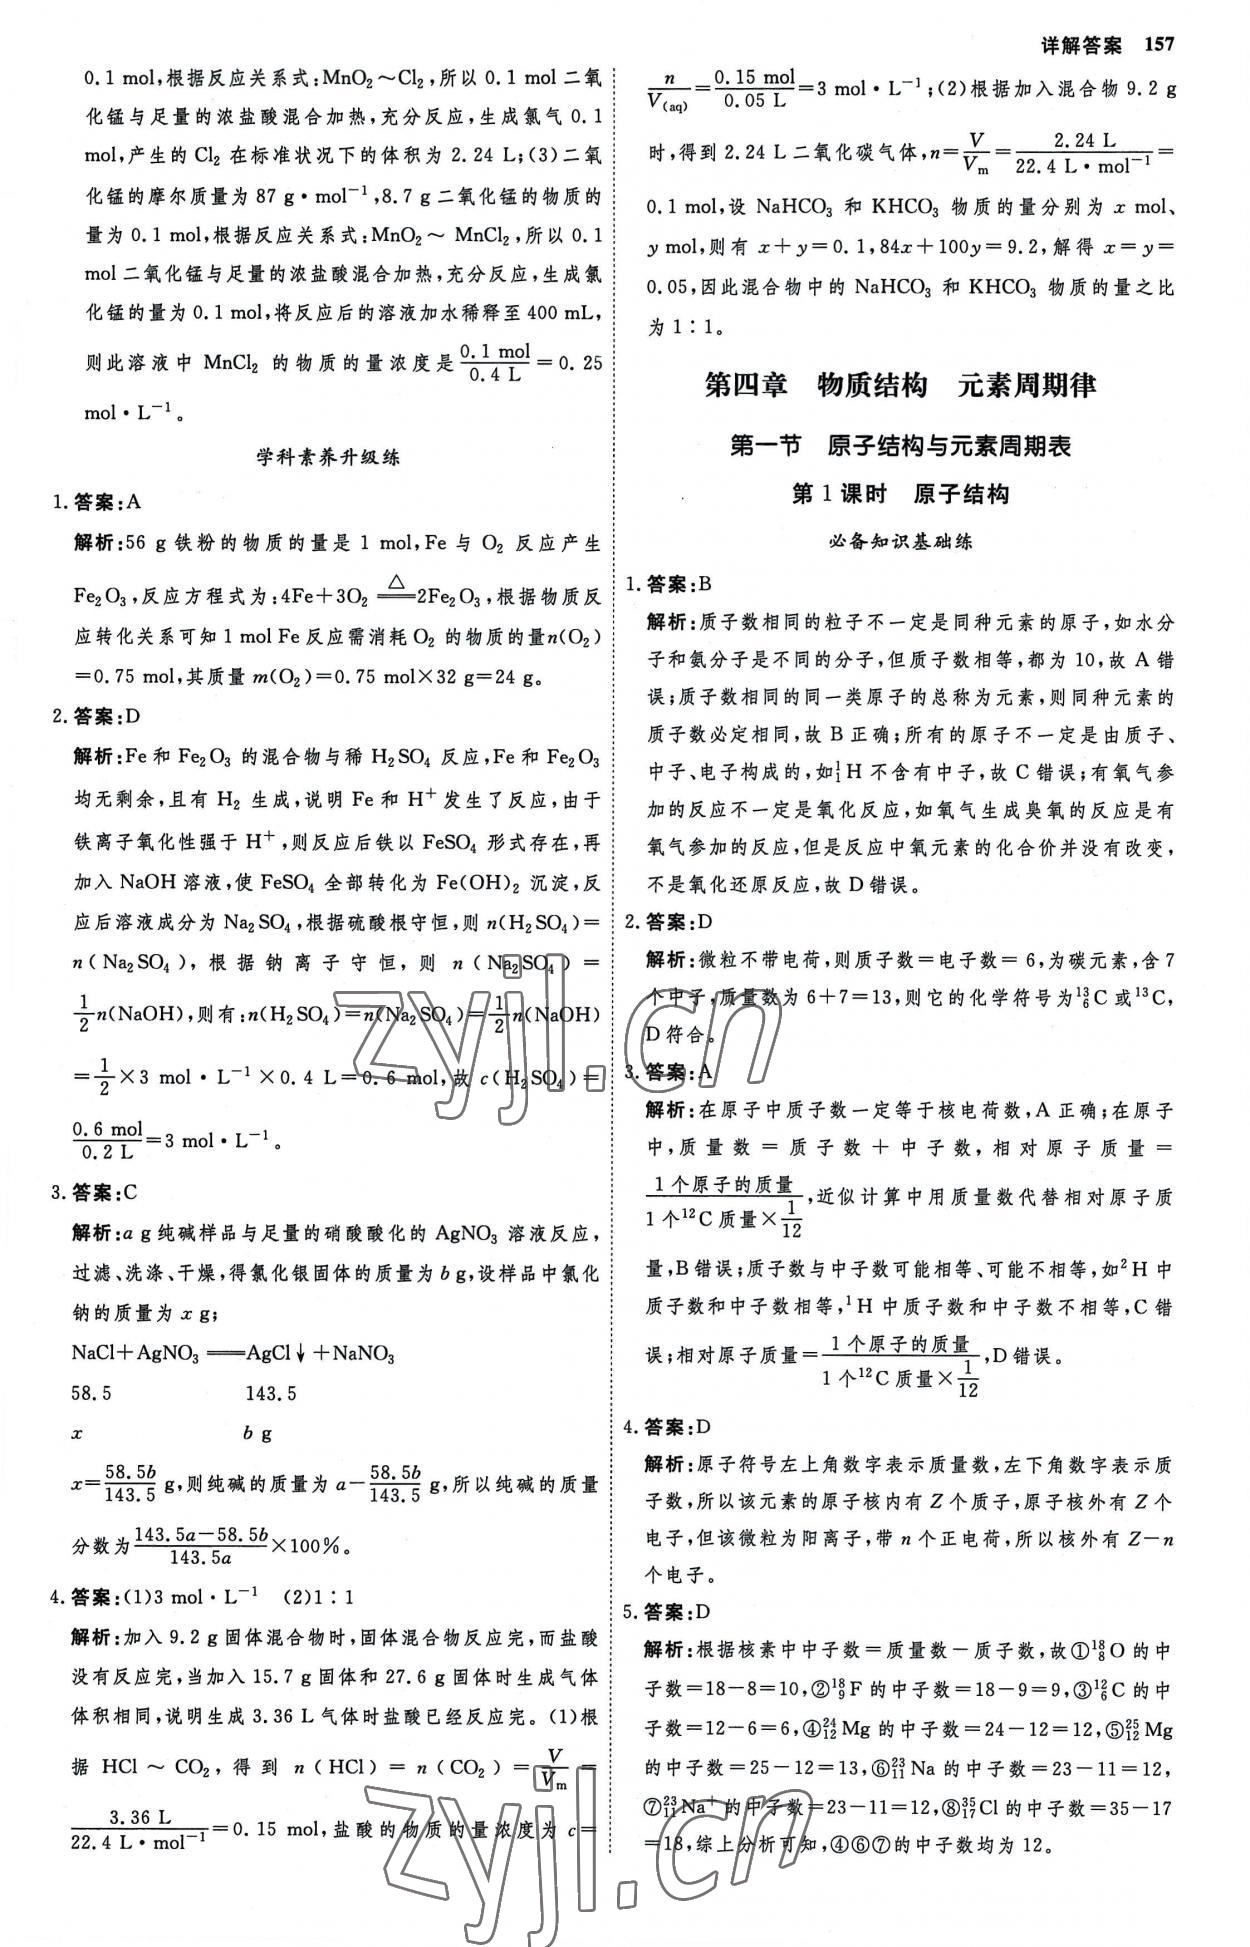 详解答案 157
0.1 mol,根据反应关系式:MnO₂~Cl₂,所以 0.1 mol 二氧
化锰与足量的浓盐酸混合加热,充分反应,生成氯气 0.1
mol,产生的 Cl₂ 在标准状况下的体积为 2.24 L;(3)二氧
化锰的摩尔质量为 87 g·mol⁻¹,8.7 g 二氧化锰的物质的
量为 0.1 mol,根据反应关系式:MnO₂~ MnCl₂,所以 0.1
mol 二氧化锰与足量的浓盐酸混合加热,充分反应,生成氯
化锰的量为 0.1 mol,将反应后的溶液加水稀释至 400 mL,
则此溶液中 MnCl₂ 的物质的量浓度是 0.1 mol/0.4 L = 0.25
mol·L⁻¹。
学科素养升级练
1. 答案:A
解析:56 g 铁粉的物质的量是 1 mol,Fe 与 O₂ 反应产生
Fe₂O₃,反应方程式为:4Fe+3O₂ ══△══ 2Fe₂O₃,根据物质反
应转化关系可知 1 mol Fe 反应需消耗 O₂ 的物质的量n(O₂)
=0.75 mol,其质量 m(O₂)=0.75 mol×32 g=24 g。
2. 答案:D
解析:Fe 和 Fe₂O₃ 的混合物与稀 H₂SO₄ 反应,Fe 和 Fe₂O₃
均无剩余,且有 H₂ 生成,说明 Fe 和 H⁺ 发生了反应,由于
铁离子氧化性强于 H⁺,则反应后铁以 FeSO₄ 形式存在,再
加入 NaOH 溶液,使 FeSO₄ 全部转化为 Fe(OH)₂ 沉淀,反
应后溶液成分为 Na₂SO₄,根据硫酸根守恒,则 n(H₂SO₄)=
n(Na₂SO₄),根据钠离子守恒,则 n(Na₂SO₄)=
1/2 n(NaOH),则有:n(H₂SO₄)=n(Na₂SO₄)=1/2 n(NaOH)
=1/2×3 mol·L⁻¹×0.4 L=0.6 mol,故 c(H₂SO₄)=
0.6 mol/0.2 L =3 mol·L⁻¹。
3. 答案:C
解析:a g 纯碱样品与足量的硝酸酸化的 AgNO₃ 溶液反应,
过滤、洗涤、干燥,得氯化银固体的质量为 b g,设样品中氯化
钠的质量为 x g;
NaCl+AgNO₃ ══ AgCl↓+NaNO₃
58.5 143.5
x b g
x=58.5b/143.5 g,则纯碱的质量为 a-58.5b/143.5 g,所以纯碱的质量
分数为 (143.5a-58.5b)/143.5a ×100%。
4. 答案:(1)3 mol·L⁻¹ (2)1∶1
解析:加入 9.2 g 固体混合物时,固体混合物反应完,而盐酸
没有反应完,当加入 15.7 g 固体和 27.6 g 固体时生成气体
体积相同,说明生成 3.36 L 气体时盐酸已经反应完。(1)根
据 HCl ~ CO₂,得到 n(HCl)= n(CO₂)= V/Vₘ =
3.36 L/22.4 L·mol⁻¹ =0.15 mol,盐酸的物质的量浓度为 c=
n/V(aq) = 0.15 mol/0.05 L =3 mol·L⁻¹;(2)根据加入混合物 9.2 g
时,得到 2.24 L 二氧化碳气体,n= V/Vₘ = 2.24 L/22.4 L·mol⁻¹ =
0.1 mol,设 NaHCO₃ 和 KHCO₃ 物质的量分别为 x mol、
y mol,则有 x+y=0.1,84x+100y=9.2,解得 x=y=
0.05,因此混合物中的 NaHCO₃ 和 KHCO₃ 物质的量之比
为 1∶1。
第四章 物质结构 元素周期律
第一节 原子结构与元素周期表
第 1 课时 原子结构
必备知识基础练
1. 答案:B
解析:质子数相同的粒子不一定是同种元素的原子,如水分
子和氨分子是不同的分子,但质子数相等,都为 10,故 A 错
误;质子数相同的同一类原子的总称为元素,则同种元素的
质子数必定相同,故 B 正确;所有的原子不一定是由质子、
中子、电子构成的,如¹₁H 不含有中子,故 C 错误;有氧气参
加的反应不一定是氧化反应,如氧气生成臭氧的反应是有
氧气参加的反应,但是反应中氧元素的化合价并没有改变,
不是氧化还原反应,故 D 错误。
2. 答案:D
解析:微粒不带电荷,则质子数=电子数= 6,为碳元素,含 7
个中子,质量数为 6+7=13,则它的化学符号为¹³₆C 或¹³C,
D 符合。
3. 答案:A
解析:在原子中质子数一定等于核电荷数,A 正确;在原子
中,质量数=质子数+中子数,相对原子质量=
1 个原子的质量/1 个¹²C 质量×1/12,近似计算中用质量数代替相对原子质
量,B 错误;质子数与中子数可能相等、可能不相等,如²H 中
质子数和中子数相等,¹H 中质子数和中子数不相等,C 错
误;相对原子质量= 1 个原子的质量/1 个¹²C 质量×1/12,D 错误。
4. 答案:D
解析:原子符号左上角数字表示质量数,左下角数字表示质
子数,所以该元素的原子核内有 Z 个质子,原子核外有 Z 个
电子,但该微粒为阳离子,带 n 个正电荷,所以核外有 Z-n
个电子。
5. 答案:D
解析:根据核素中中子数=质量数-质子数,故①¹⁸₈O 的中
子数=18-8=10,②¹⁸₉F 的中子数=18-9=9,③¹²₆C 的中
子数=12-6=6,④²⁴₁₂Mg 的中子数=24-12=12,⑤²⁵₁₂Mg
的中子数=25-12=13,⑥²³₁₁Na 的中子数=23-11=12,
⑦²³₁₁Na⁺ 的中子数=23-11=12,⑧³⁵₁₇Cl 的中子数=35-17
=18,综上分析可知,④⑥⑦的中子数均为 12。
zyjl.cn
zyjl.cn